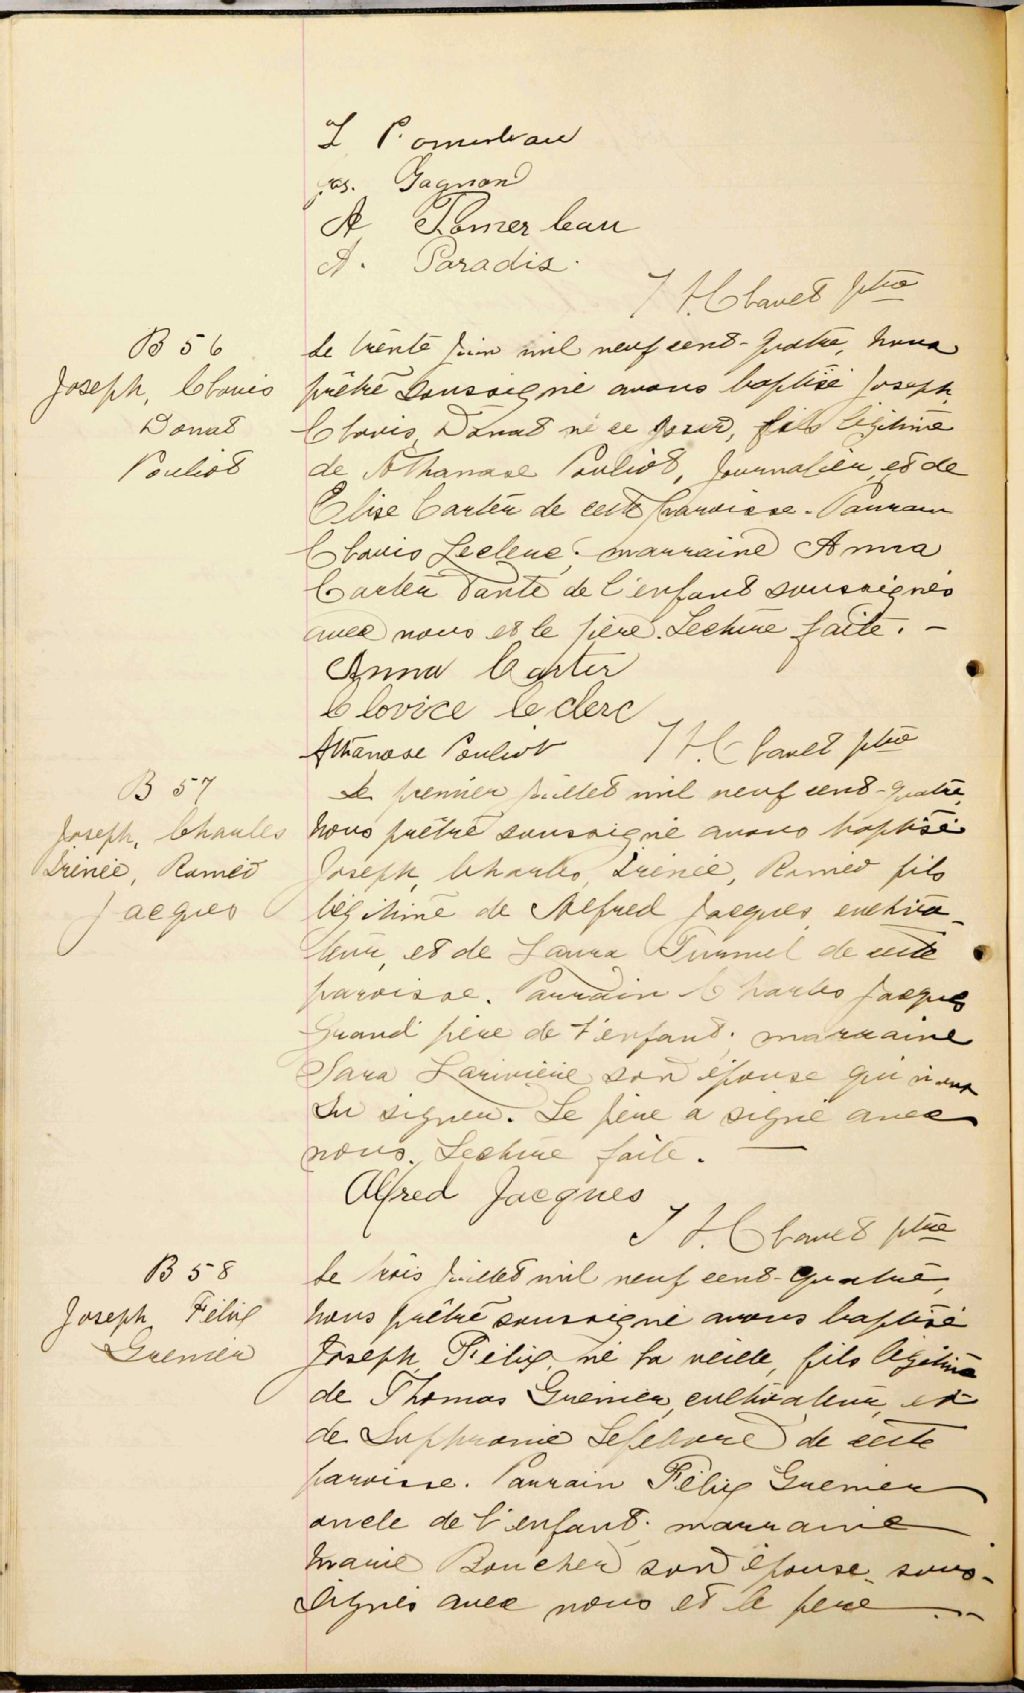 L Pomerleau
Jos. Gagnon
A Pomerleau
A. Paradis.
J H. Clavet ptre
B 56
Joseph, Clovis
Donat
Pouliot
Le trente juin mil neuf cent-quatre, nous
prêtre soussigné avons baptisé Joseph,
Clovis, Donat né ce jour, fils légitime
de Athanase Pouliot, journalier, et de
Elise Carter de cette paroisse. Parrain
Clovis Leclerc; marraine Anna
Carter tante de l'enfant soussignés
avec nous et le père. Lecture faite. –
Anna Carter
Clovice Leclerc
Athanase Pouliot
J H. Clavet ptre
B 57
Joseph, Charles
Irénée, Roméo
Jacques
Le premier juillet mil neuf cent-quatre,
nous prêtre soussigné avons baptisé
Joseph, Charles, Irénée, Roméo fils
légitime de Alfred Jacques, cultiva-
teur, et de Laura Turmel de cette
paroisse. Parrain Charles Jacques
Grand père de l'enfant; marraine
Sara Larivière son épouse qui n'ont
su signer. Le père a signé avec
nous. Lecture faite. —
Alfred Jacques
J H. Clavet ptre
B 58
Joseph Félix
Grenier
Le trois juillet mil neuf cent-quatre,
nous prêtre soussigné avons baptisé
Joseph, Félix, né la veille, fils légitime
de Thomas Grenier, cultivateur, et
de Suphronie Lefebvre de cette
paroisse. Parrain Félix Grenier
oncle de l'enfant; marraine
Marie Boucher son épouse sous-
signés avec nous et le père